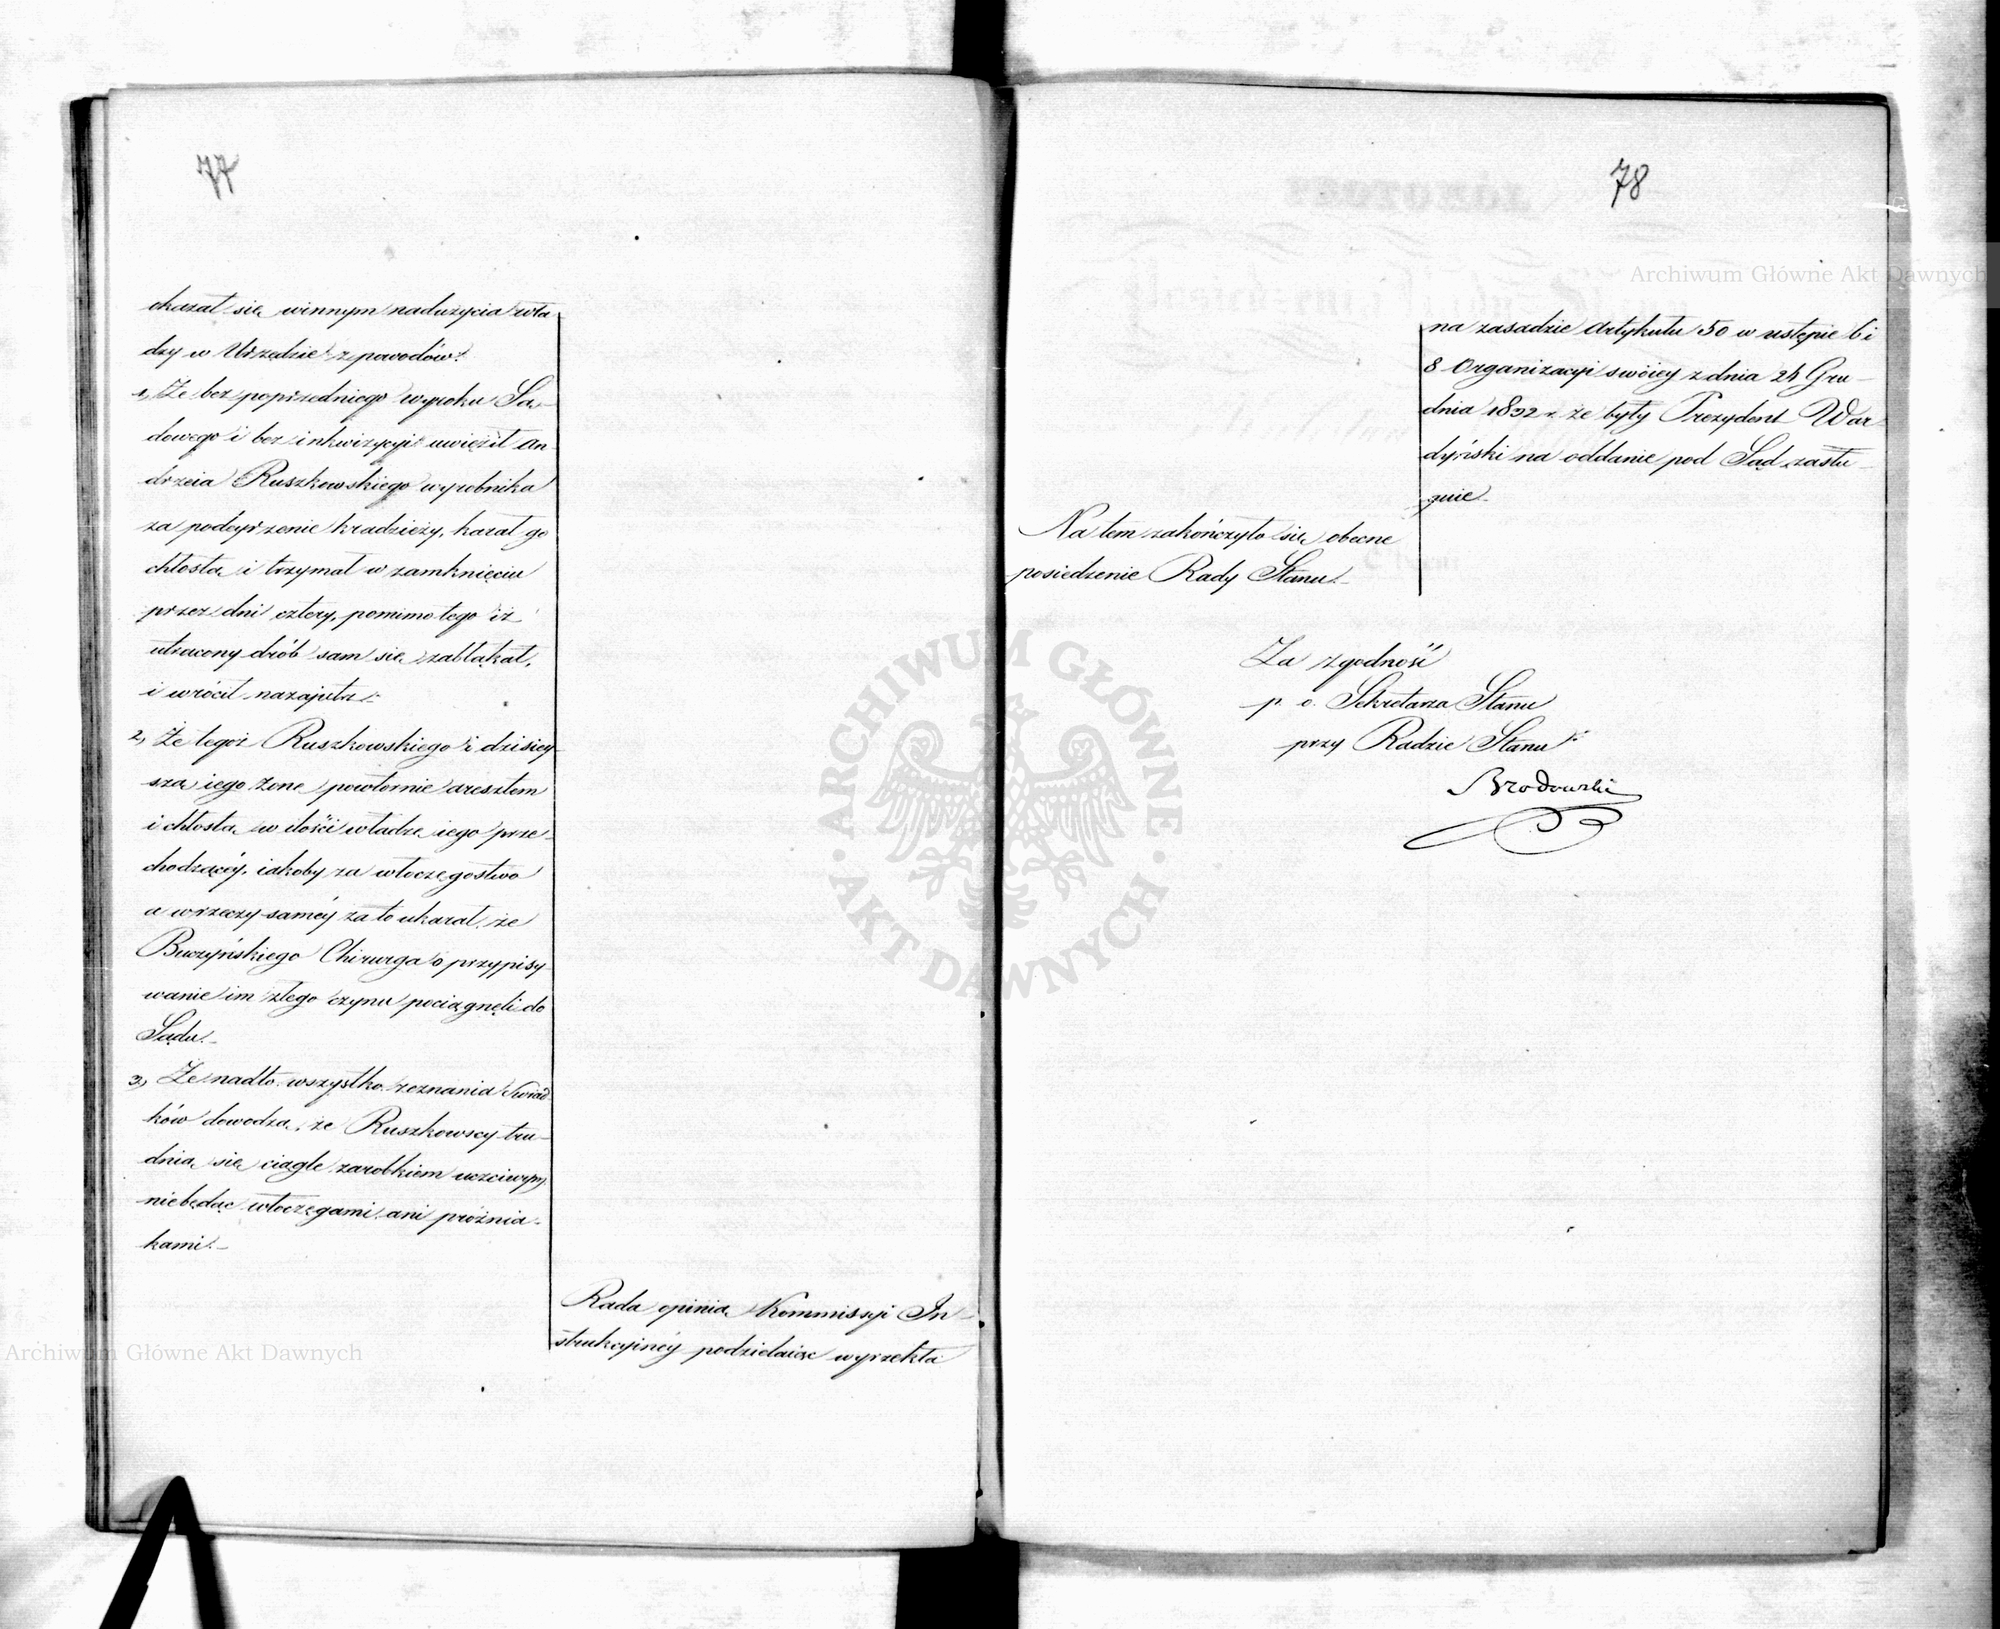 77
okazał się winnym nadużycia wła
dzy w Urzędzie z powodów:
1, Że bez poprzedniego wyroku Są-
dowego i bez inkwizycyi uwięził An
drzeia Ruszkowskiego wyrobnika
za podeyrzenie kradzieży, karał go
chłostą i trzymał w zamknięciu
przez dni cztery, pomimo tego iż
utracony drób sam się zabłąkał,
i wrócił nazajutrz.
2, Że tegoż Ruszkowskiego i dzisiey-
szą iego żonę powtornie aresztem
i chłostą w ilości władzę iego prze-
chodzącéy, iakoby za włóczęgostwo
a w rzeczy saméy za to ukarał, że
Buczyńskiego Chirurga o przypisy-
wanie im złego czynu pociągnęli do
Sądu.-
3, Że nadto wszystko zeznania Świad-
ków dowodzą, że Ruszkowscy tru-
dnią się ciągle zarobkiem uczciwym
niebędąc włóczęgami ani próżnia-
kami.-
Rada opinią Kommissyi In-
strukcyinéy podzielaiąc wyrzekła
78
na zasadzie Artykułu 50 w ustępie 6 i
8 Organizacyi swoiey z dnia 24 Gru-
dnia 1832 r. że były Prezydent War-
dyński na oddanie pod Sąd zasłu-
guie.-
Na tem zakończyło się obecne
posiedzenie Rady Stanu.-
Za zgodność
p. o. Sekretarza Stanu
przy Radzie Stanu
Brodowski
Archiwum Główne Akt Dawnych
Archiwum Główne Akt Dawnych
ARCHIWUM GŁÓWNE
AKT DAWNYCH